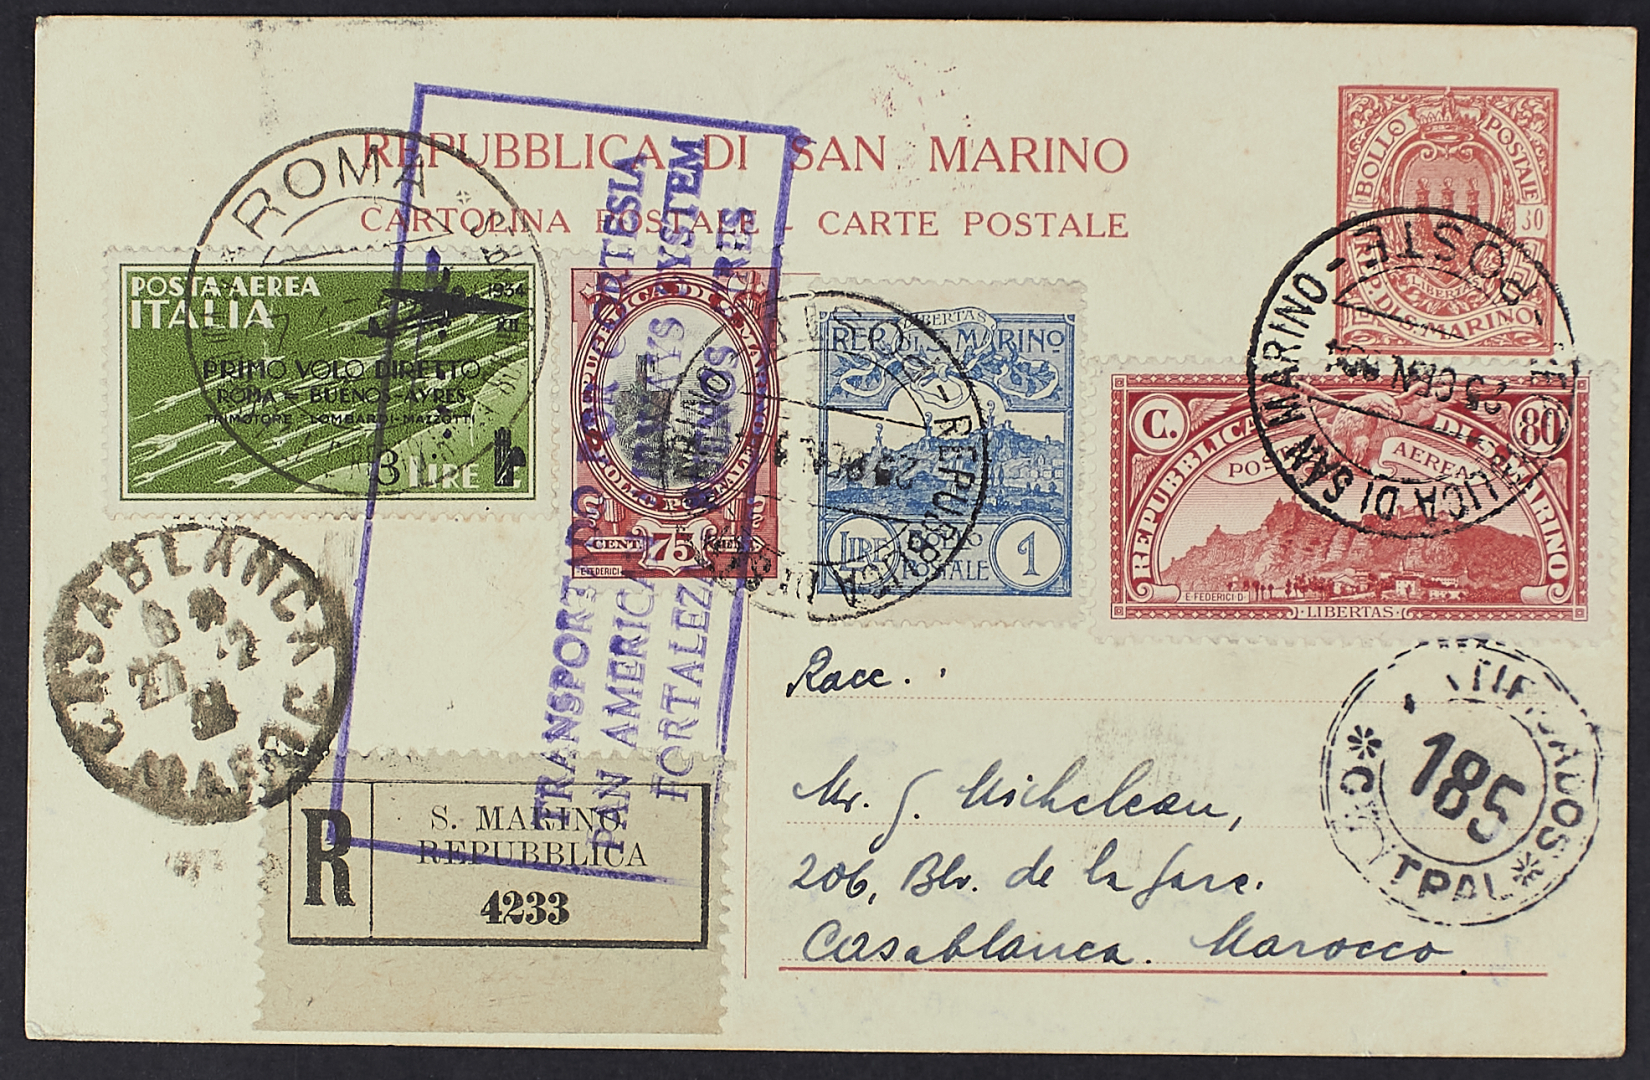 REPUBBLICA DI SAN MARINO
CARTOLINA POSTALE - CARTE POSTALE
BOLLO POSTALE
30
REP. DI S. MARINO
LIBERTAS
ROMA
POSTA AEREA
ITALIA
1934
XII
PRIMO VOLO DIRETTO
ROMA = BUENOS-AYRES
TRIMOTORE LOMBARDI-MAZZOTTI
3 LIRE
CENT 75
E. FEDERICI
LIBERTAS
REP. DI S. MARINO
LIRE 1
POSTALE
REPUBBLICA DI SAN MARINO
C. 80
POSTA AEREA
REPUBBLICA DI S. MARINO
E. FEDERICI D.
LIBERTAS
REPUBBLICA DI SAN MARINO - POSTE
25 GEN
TRANSPORTADO POR CORTESIA
PAN AMERICAN AIRWAYS SYSTEM
FORTALEZA BUENOS AIRES
CASABLANCA
MAROC
R
S. MARINO
REPUBBLICA
4233
Race.
Mr. J. Micheleau,
206, Blv. de la Gare.
Casablanca. Marocco.
CERTIFICADOS
185
CENTRAL